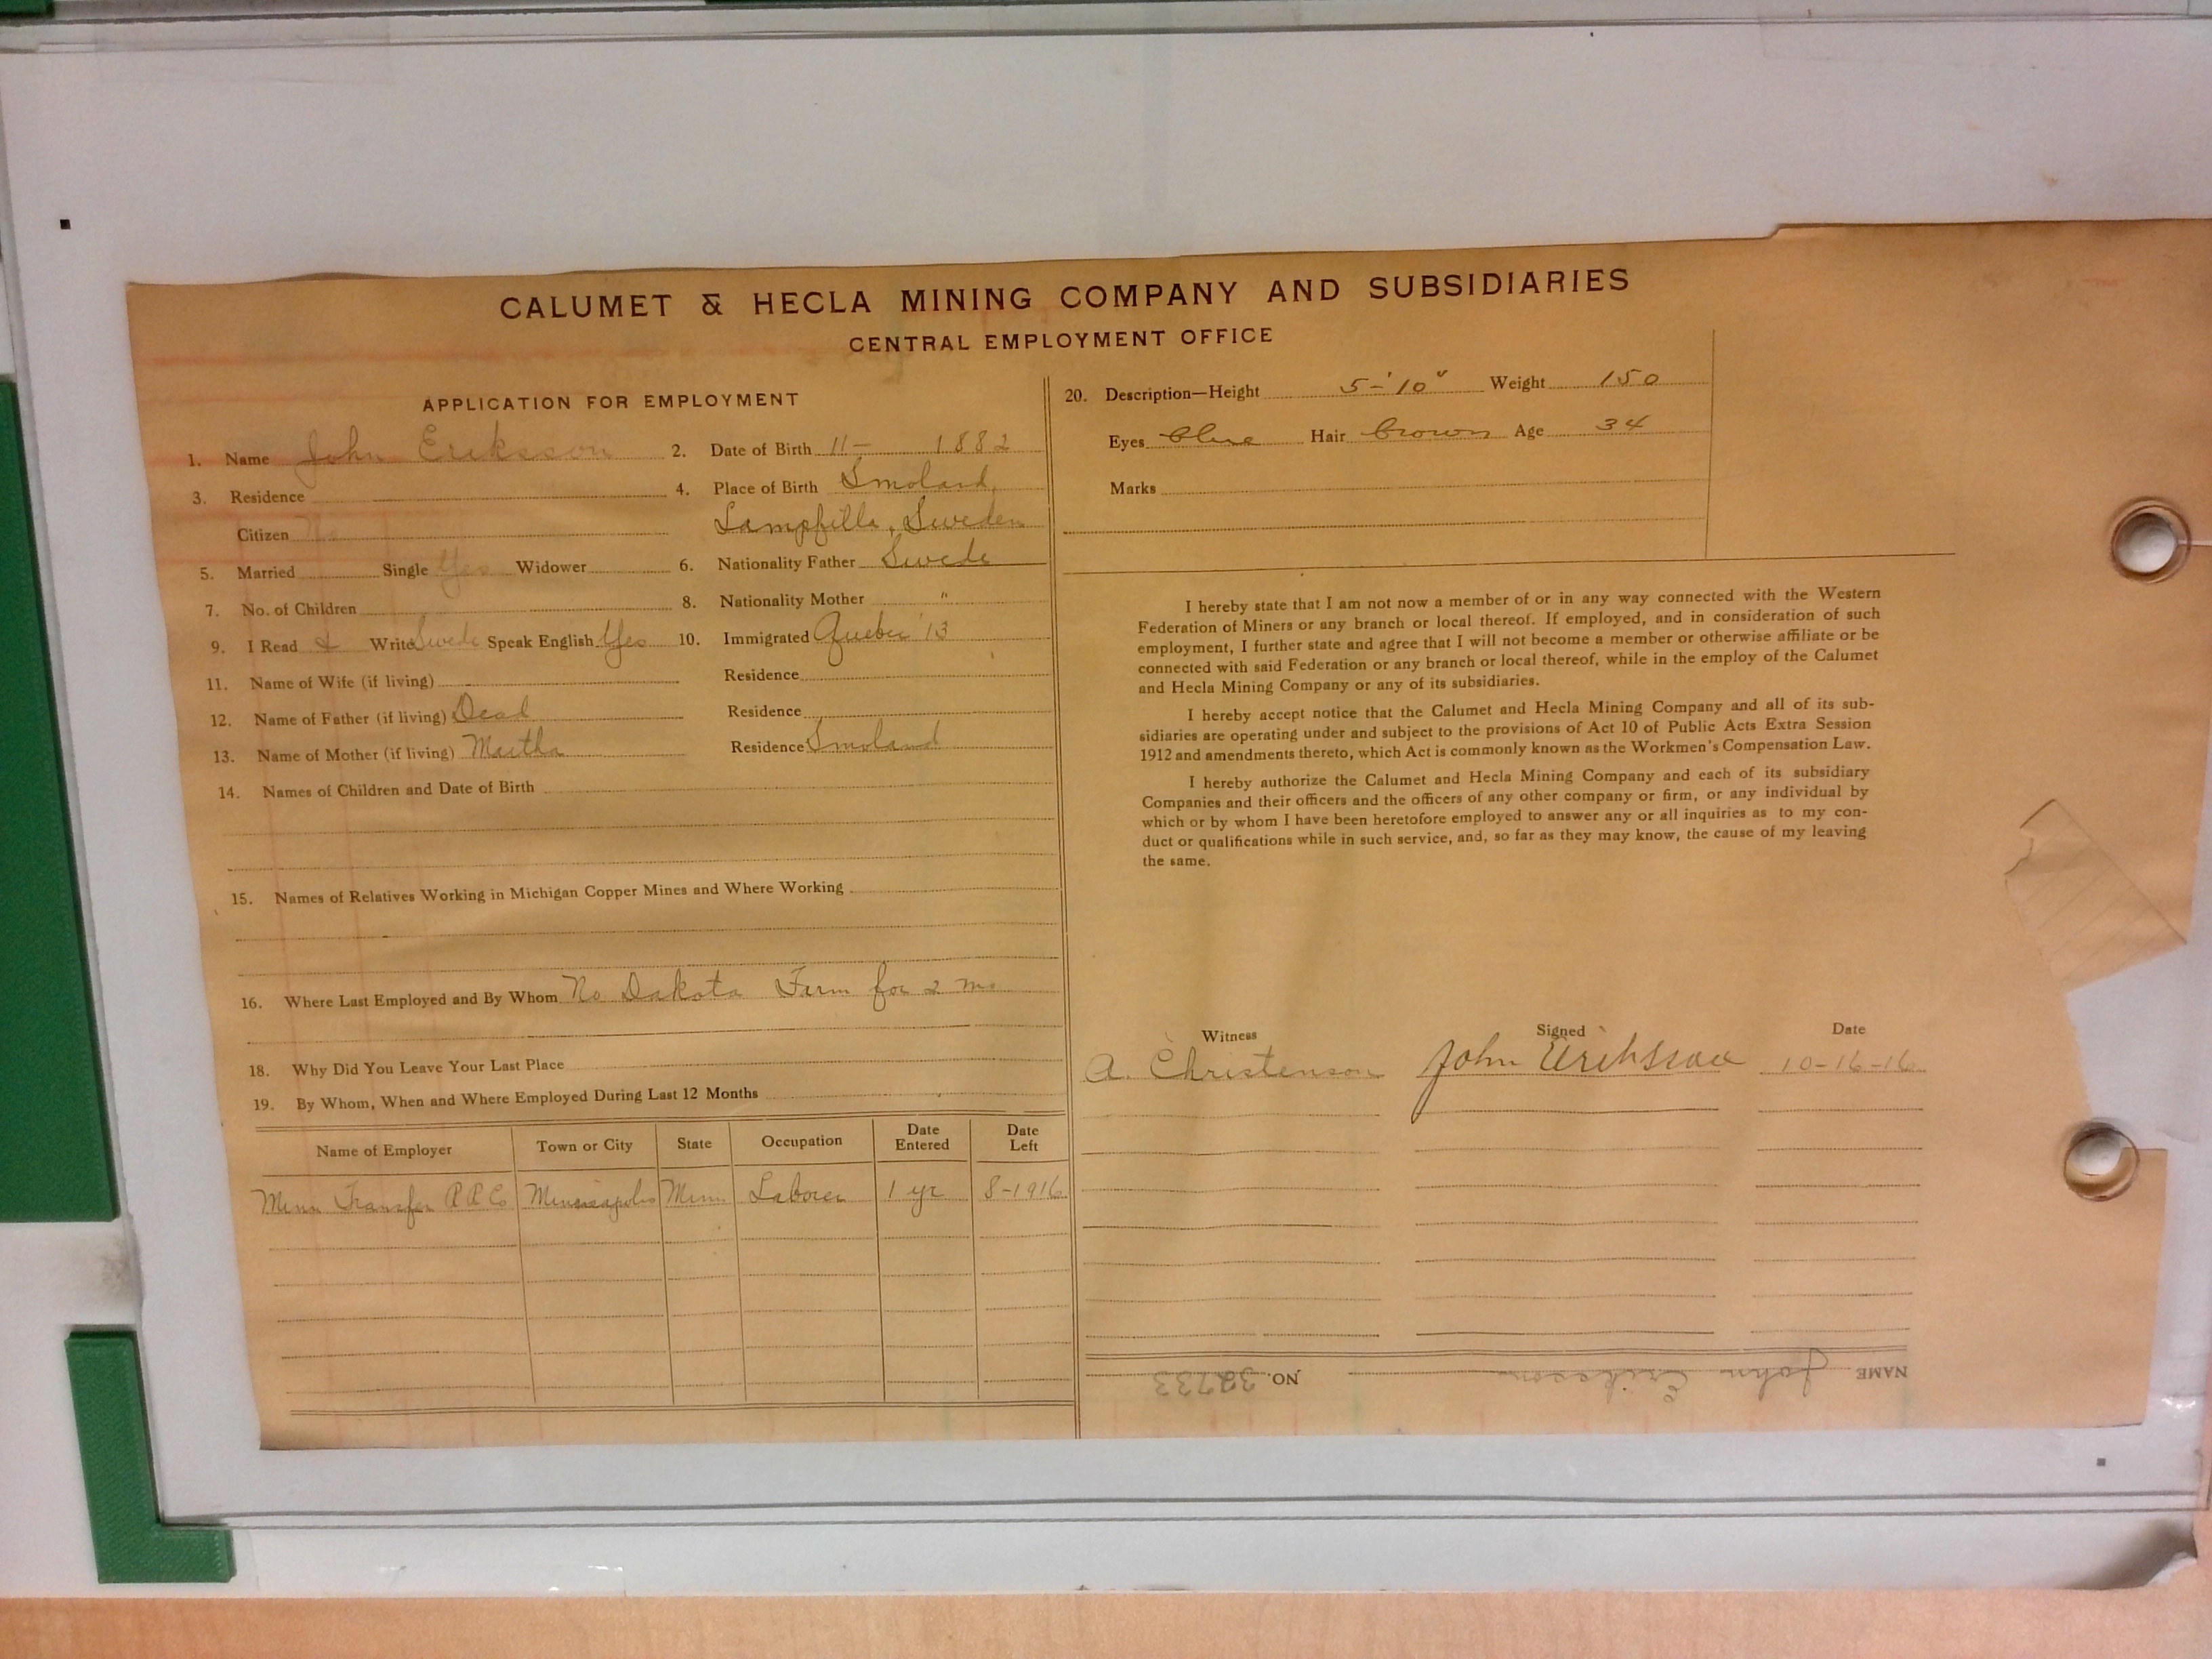 CALUMET & HECLA MINING COMPANY AND SUBSIDIARIES
CENTRAL EMPLOYMENT OFFICE
APPLICATION FOR EMPLOYMENT
1. Name John Eriksson 2. Date of Birth 11- 1882
3. Residence 4. Place of Birth Smoland
Citizen No Sweden
5. Married Single Yes Widower 6. Nationality Father Swede
7. No. of Children 8. Nationality Mother "
9. I Read & Write Swede Speak English Yes 10. Immigrated Quebec '13
11. Name of Wife (if living) Residence
12. Name of Father (if living) Dead Residence
13. Name of Mother (if living) Martha Residence Smoland
14. Names of Children and Date of Birth
15. Names of Relatives Working in Michigan Copper Mines and Where Working
16. Where Last Employed and By Whom No Dakota Farm for 2 mo
18. Why Did You Leave Your Last Place
19. By Whom, When and Where Employed During Last 12 Months
Name of Employer Town or City State Occupation Date Entered Date Left
Minn Transfer R R Co Minneapolis Minn Laborer 1 yr 8-1916
20. Description—Height 5-'10" Weight 150
Eyes Blue Hair Brown Age 34
Marks
I hereby state that I am not now a member of or in any way connected with the Western
Federation of Miners or any branch or local thereof. If employed, and in consideration of such
employment, I further state and agree that I will not become a member or otherwise affiliate or be
connected with said Federation or any branch or local thereof, while in the employ of the Calumet
and Hecla Mining Company or any of its subsidiaries.
I hereby accept notice that the Calumet and Hecla Mining Company and all of its sub-
sidiaries are operating under and subject to the provisions of Act 10 of Public Acts Extra Session
1912 and amendments thereto, which Act is commonly known as the Workmen's Compensation Law.
I hereby authorize the Calumet and Hecla Mining Company and each of its subsidiary
Companies and their officers and the officers of any other company or firm, or any individual by
which or by whom I have been heretofore employed to answer any or all inquiries as to my con-
duct or qualifications while in such service, and, so far as they may know, the cause of my leaving
the same.
Witness Signed Date
A. Christenson John Eriksson 10-16-16
NAME John Erikson NO. 32733